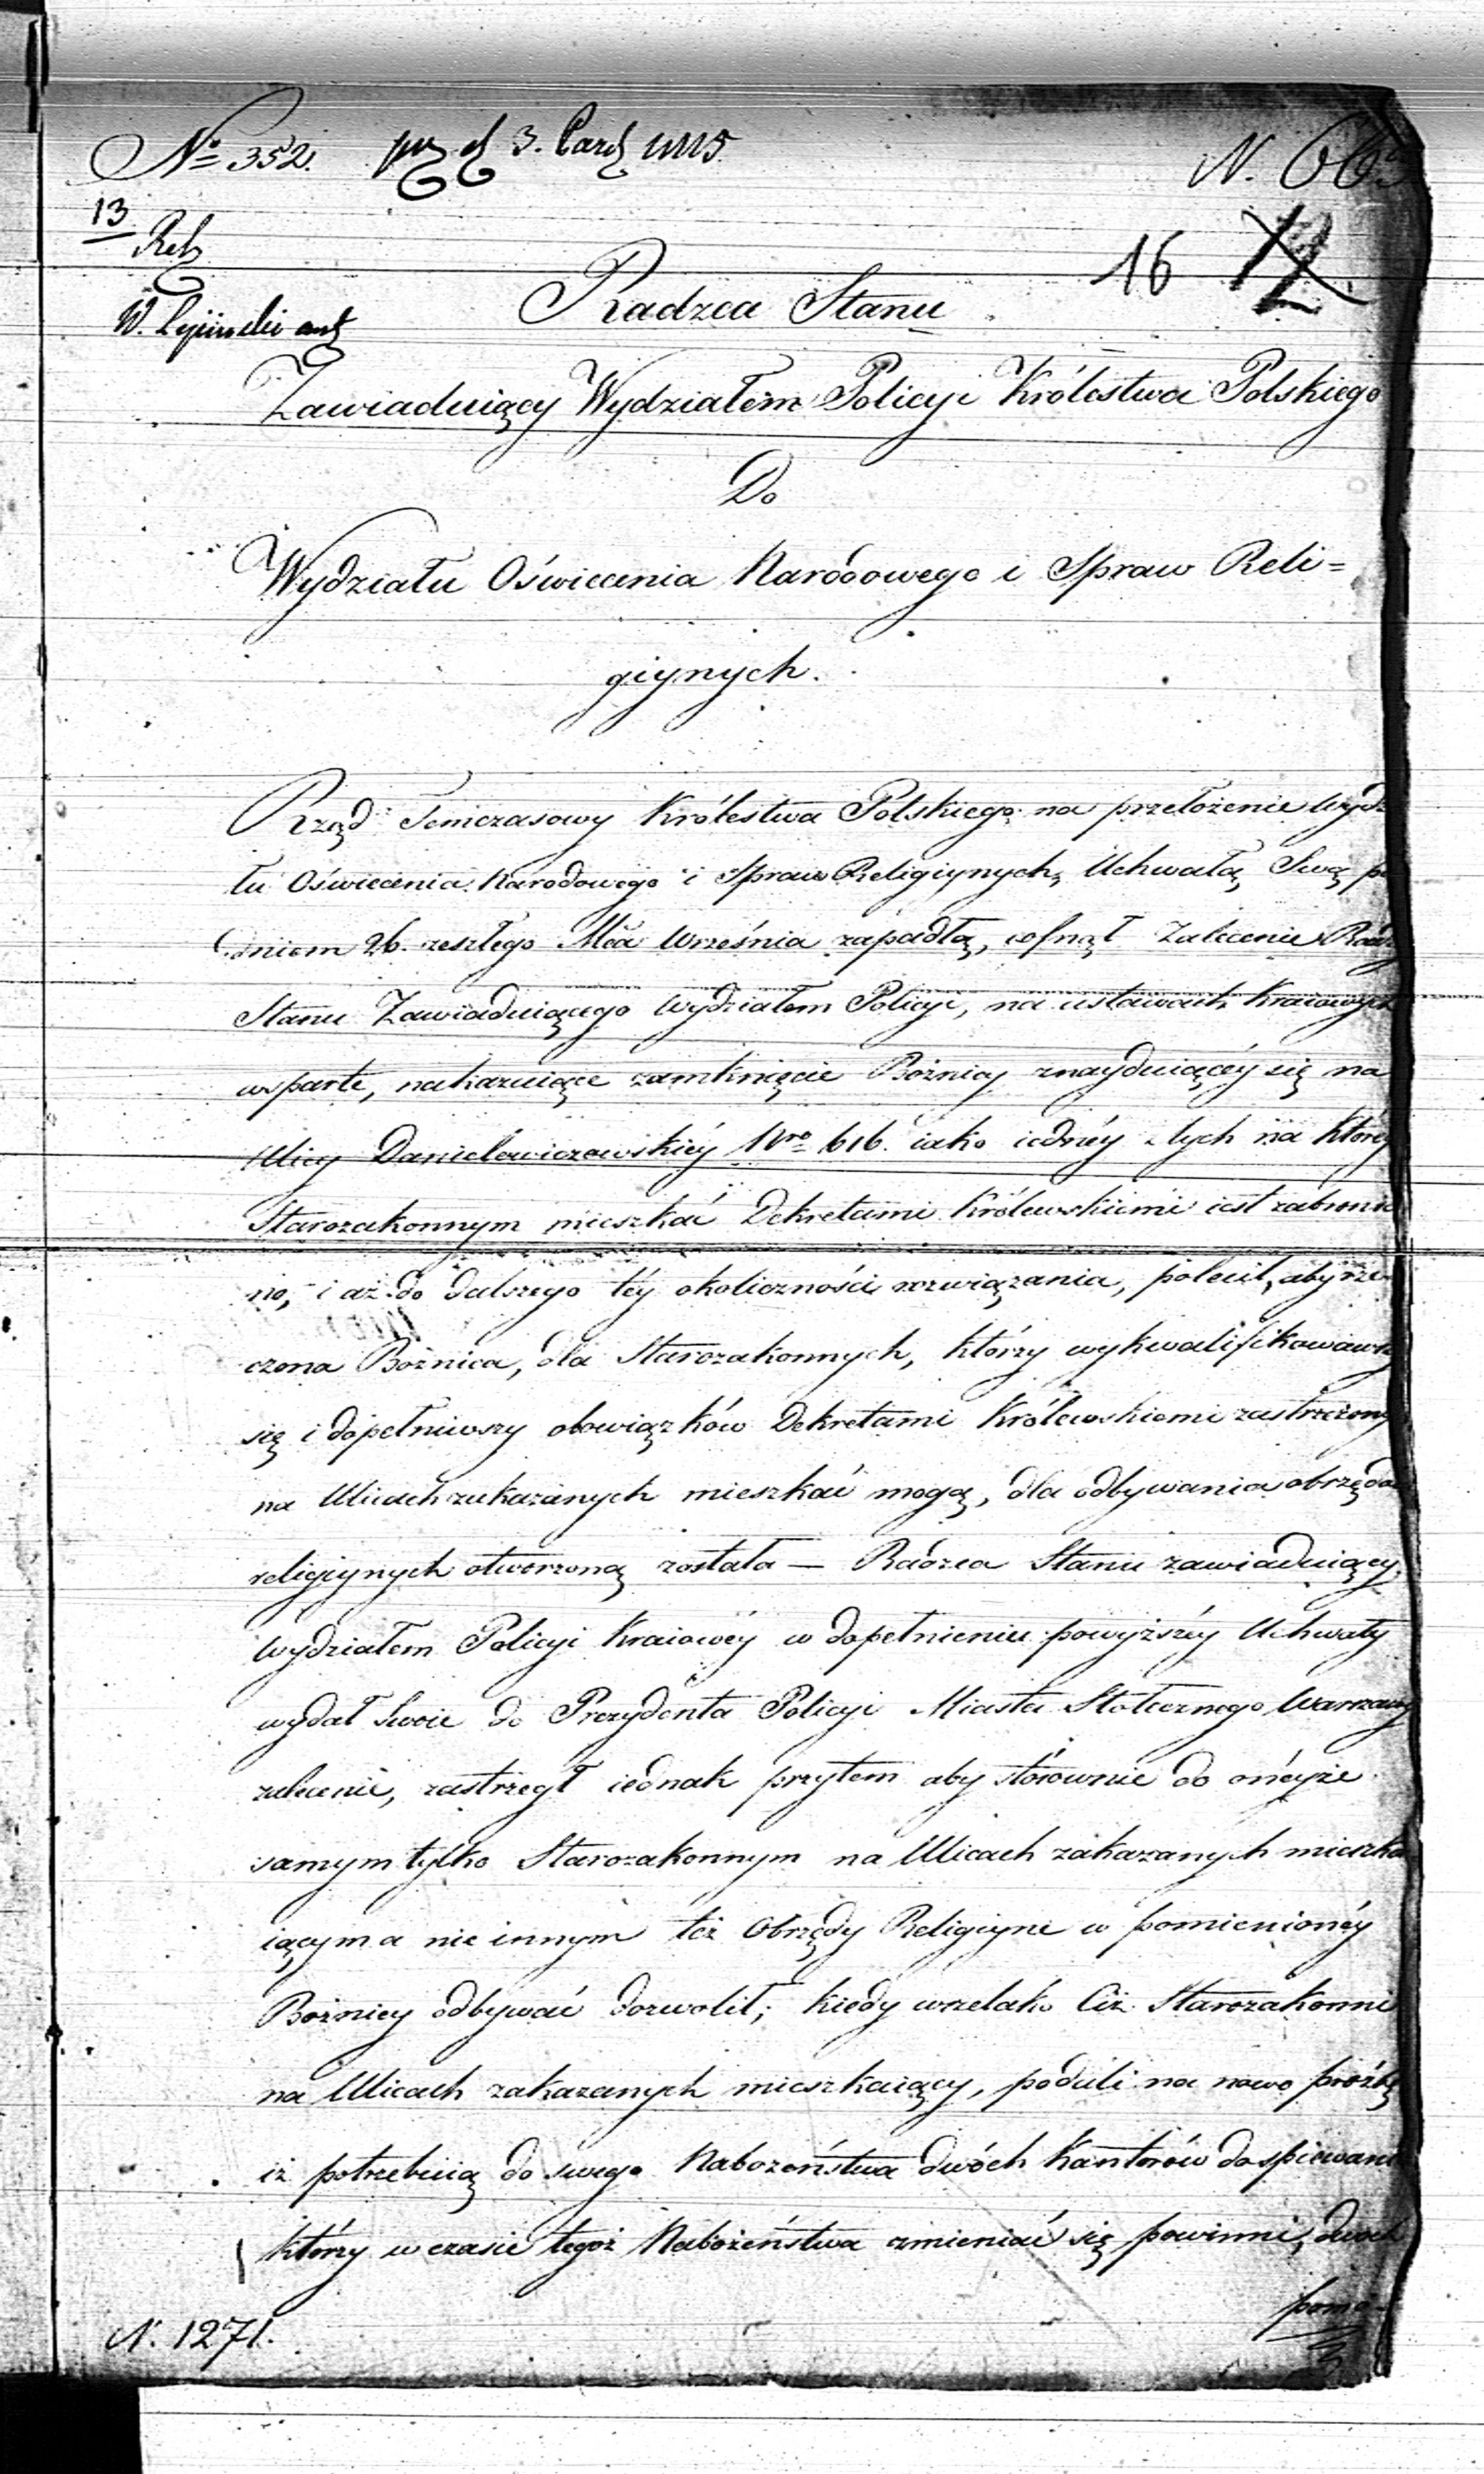 No 352. 3. Paźd 1815
N. 66
13
16 12
Radzca Stanu
Zawiaduiący Wydziałem Policyi Królestwa Polskiego
Do
Wydziału Oświecenia Narodowego i Spraw Reli=
giynych.
Rząd Temczasowy Królestwa Polskiego na przełożenie Wydz
łu Oświecenia Narodowego i Spraw Religiynych, Uchwałą Swą
dniem 26. zeszłego Mca Września zapadłą, cofnął Zalecenie Radz
Stanu Zawiaduiącego Wydziałem Policyi, na ustawach Kraiowych
wsparte, nakazuiące zamknięcie Bóżnicy znayduiącéy się na
Ulicy Danielewiczowskiéy Nro 616. iako iednéy z tych na któréy
Starozakonnym mieszkać Dekretami Królewskiemi iest zabronio
no, i aż do dalszego téy okoliczności rozwiązania, polecił, aby rze
czona Bóżnica, dla Starozakonnych, którzy wykwalifikowawszy
się i dopełniwszy obowiązków Dekretami Królewskiemi zastrzeżony
na Ulicach zakazanych mieszkać mogą, dla odbywania obrzędów
religiynych otworzoną została — Radzca Stanu zawiaduiący
Wydziałem Policyi Kraiowéy w dopełnieniu powyższéy Uchwały
wydał Swoie do Prezydenta Policyi Miasta Stołecznego Warszawy
zalecenie, zastrzegł iednak przytem aby stósownie do onéyże
samym tylko Starozakonnym na Ulicach zakazanych mieszka
iącym a nie innym też Obrzędy Religiyne w pomienionéy
Bożnicy odbywać dozwolił; kiedy wszelako Ciż Starozakonni
na Ulicach zakazanych mieszkaiący, podali na nowo prośbę
iż potrzebuią do swego Nabożeństwa dwóch Kantorów do śpiewani
którzy w czasie tegoż Nabożeństwa zmieniać się powinni, dwóch
pomo-
N. 1271.